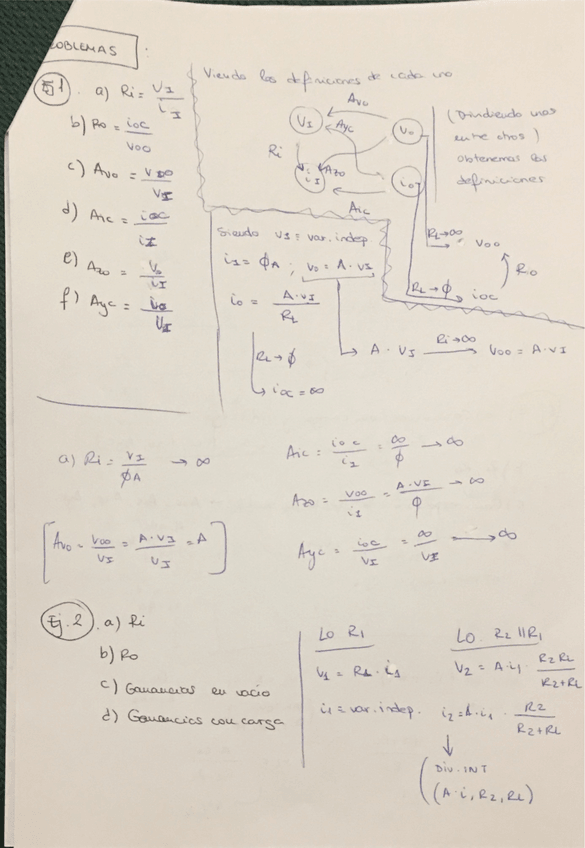 PROBLEMAS
Ej 1. a) Ri = VI / iI
b) Ro = ioc / voo
c) Avo = voo / VI
d) Aic = ioc / iI
e) Azo = Vo / iI
f) Ayc = ioc / VI
Viendo las definiciones de cada uno
Avo
VI
Vo
Ayc
Ri
Azo
iI
io
Aic
(Dividiendo unos
entre otros)
obtenemos las
definiciones
RL→∞
Voo
Ro
RL→φ
ioc
Siendo VI = var. indep.
iI = φA ; vo = A·vI
io = A·vI / RL
RL→φ
ioc = ∞
A·VI Ri→∞ Voo = A·VI
a) Ri = VI / φA → ∞
Aic = ioc / iI = ∞ / φ → ∞
Azo = voo / iI = A·VI / φ → ∞
[Avo = Voo / VI = A·VI / VI = A]
Ayc = ioc / VI = ∞ / VI → ∞
Ej. 2. a) Ri
b) Ro
c) Ganancias en vacio
d) Ganancias con carga
Lo R1
V1 = R1·i1
i1 = var. indep.
Lo R2 || RL
V2 = A·i1· R2RL / R2+RL
i2 = A·i1· R2 / R2+RL
Div. INT
(A·i, R2, RL)